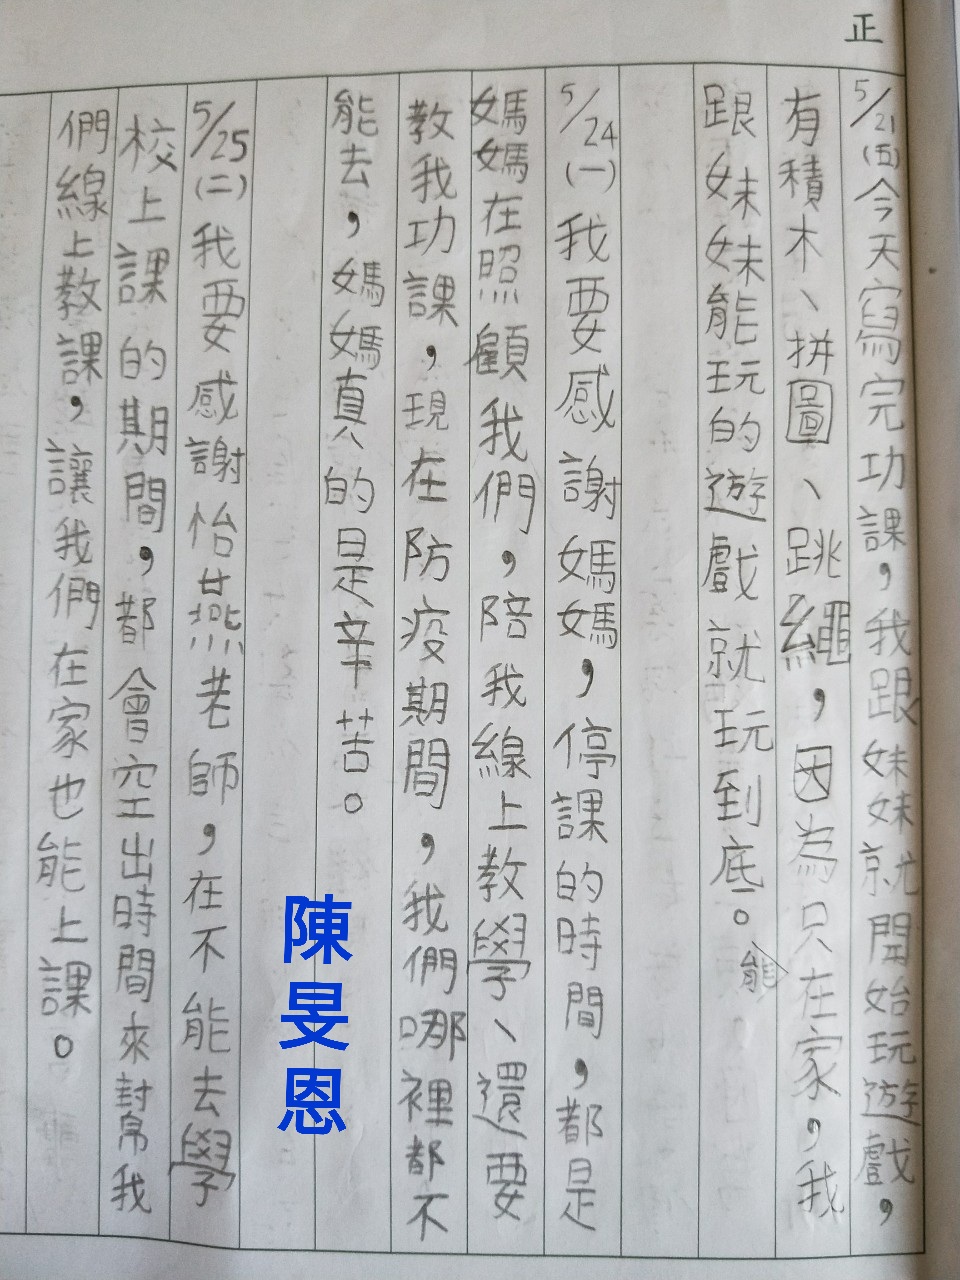 正
5/21(五)今天寫完功課,我跟妹妹就開始玩遊戲,
有積木、拼圖、跳繩,因為只在家,我
能
跟妹妹能玩的遊戲就玩到底。
5/24(一)我要感謝媽媽,停課的時間,都是
媽媽在照顧我們,陪我線上教學、還要
教我功課,現在防疫期間,我們哪裡都不
能去,媽媽真的是辛苦。
陳旻恩
5/25(二)我要感謝怡燕老師,在不能去學
校上課的期間,都會空出時間來幫我
們線上教課,讓我們在家也能上課。